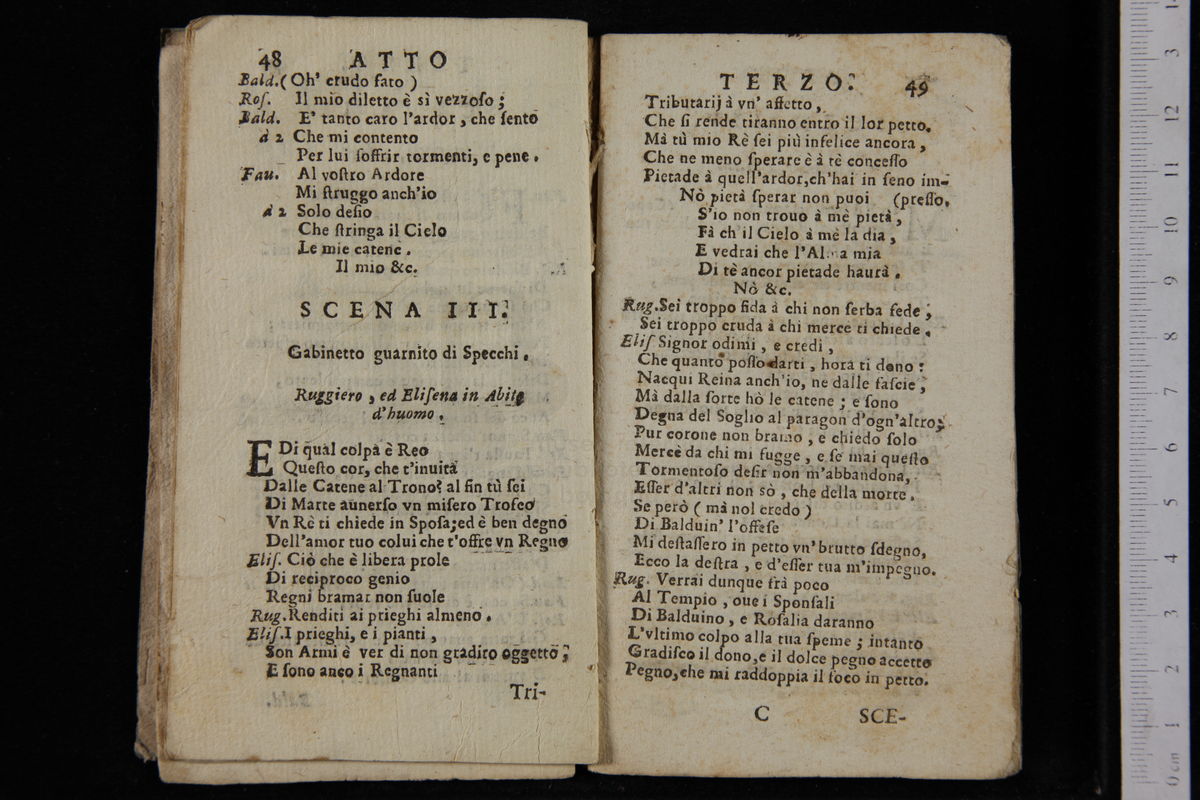 48 ATTO
Bald. (Oh' crudo fato)
Roſ. Il mio diletto è sì vezzoſo;
Bald. E' tanto caro l'ardor, che ſento
à 2 Che mi contento
Per lui ſoffrir tormenti, e pene.
Fau. Al voſtro Ardore
Mi ſtruggo anch'io
à 2 Solo deſio
Che ſtringa il Cielo
Le mie catene.
Il mio &c.
SCENA III.
Gabinetto guarnito di Specchi.
Ruggiero, ed Eliſena in Abito
d'huomo.
E Di qual colpa è Reo
Queſto cor, che t'inuita
Dalle Catene al Trono? al fin tù ſei
Di Marte auuerſo vn miſero Trofeo
Vn Rè ti chiede in Spoſa; ed è ben degno
Dell'amor tuo colui che t'offre vn Regno
Eliſ. Ciò che è libera prole
Di reciproco genio
Regni bramar non ſuole
Rug. Renditi ai prieghi almeno.
Eliſ. I prieghi, e i pianti,
Son Armi è ver di non gradito oggetto;
E ſono anco i Regnanti
Tri-
TERZO. 49
Tributarij à vn' affetto,
Che ſi rende tiranno entro il lor petto.
Mà tù mio Rè ſei più infelice ancora,
Che ne meno ſperare è à tè conceſſo
Pietade à quell'ardor, ch'hai in ſeno im-
Nò pietà ſperar non puoi (preſſo.
S'io non trouo à mè pietà,
Fà ch'il Cielo à mè la dia,
E vedrai che l'Alma mia
Di tè ancor pietade haurà.
Nò &c.
Rug. Sei troppo fida à chi non ſerba fede;
Sei troppo cruda à chi merce ti chiede.
Eliſ Signor odimi, e credi,
Che quanto poſſo darti, hora ti dono:
Nacqui Reina anch'io, ne dalle faſcie,
Mà dalla ſorte hò le catene; e ſono
Degna del Soglio al paragon d'ogn'altro;
Pur corone non bramo, e chiedo ſolo
Mercè da chi mi fugge, e ſe mai queſto
Tormentoſo deſir non m'abbandona,
Eſſer d'altri non sò, che della morte.
Se però (mà nol credo)
Di Balduin' l'offeſe
Mi deſtaſſero in petto vn' brutto ſdegno,
Ecco la deſtra, e d'eſſer tua m'impegno.
Rug. Verrai dunque frà poco
Al Tempio, oue i Sponſali
Di Balduino, e Roſalia daranno
L'vltimo colpo alla tua ſpeme; intanto
Gradiſco il dono, e il dolce pegno accetto
Pegno, che mi raddoppia il foco in petto.
C SCE-